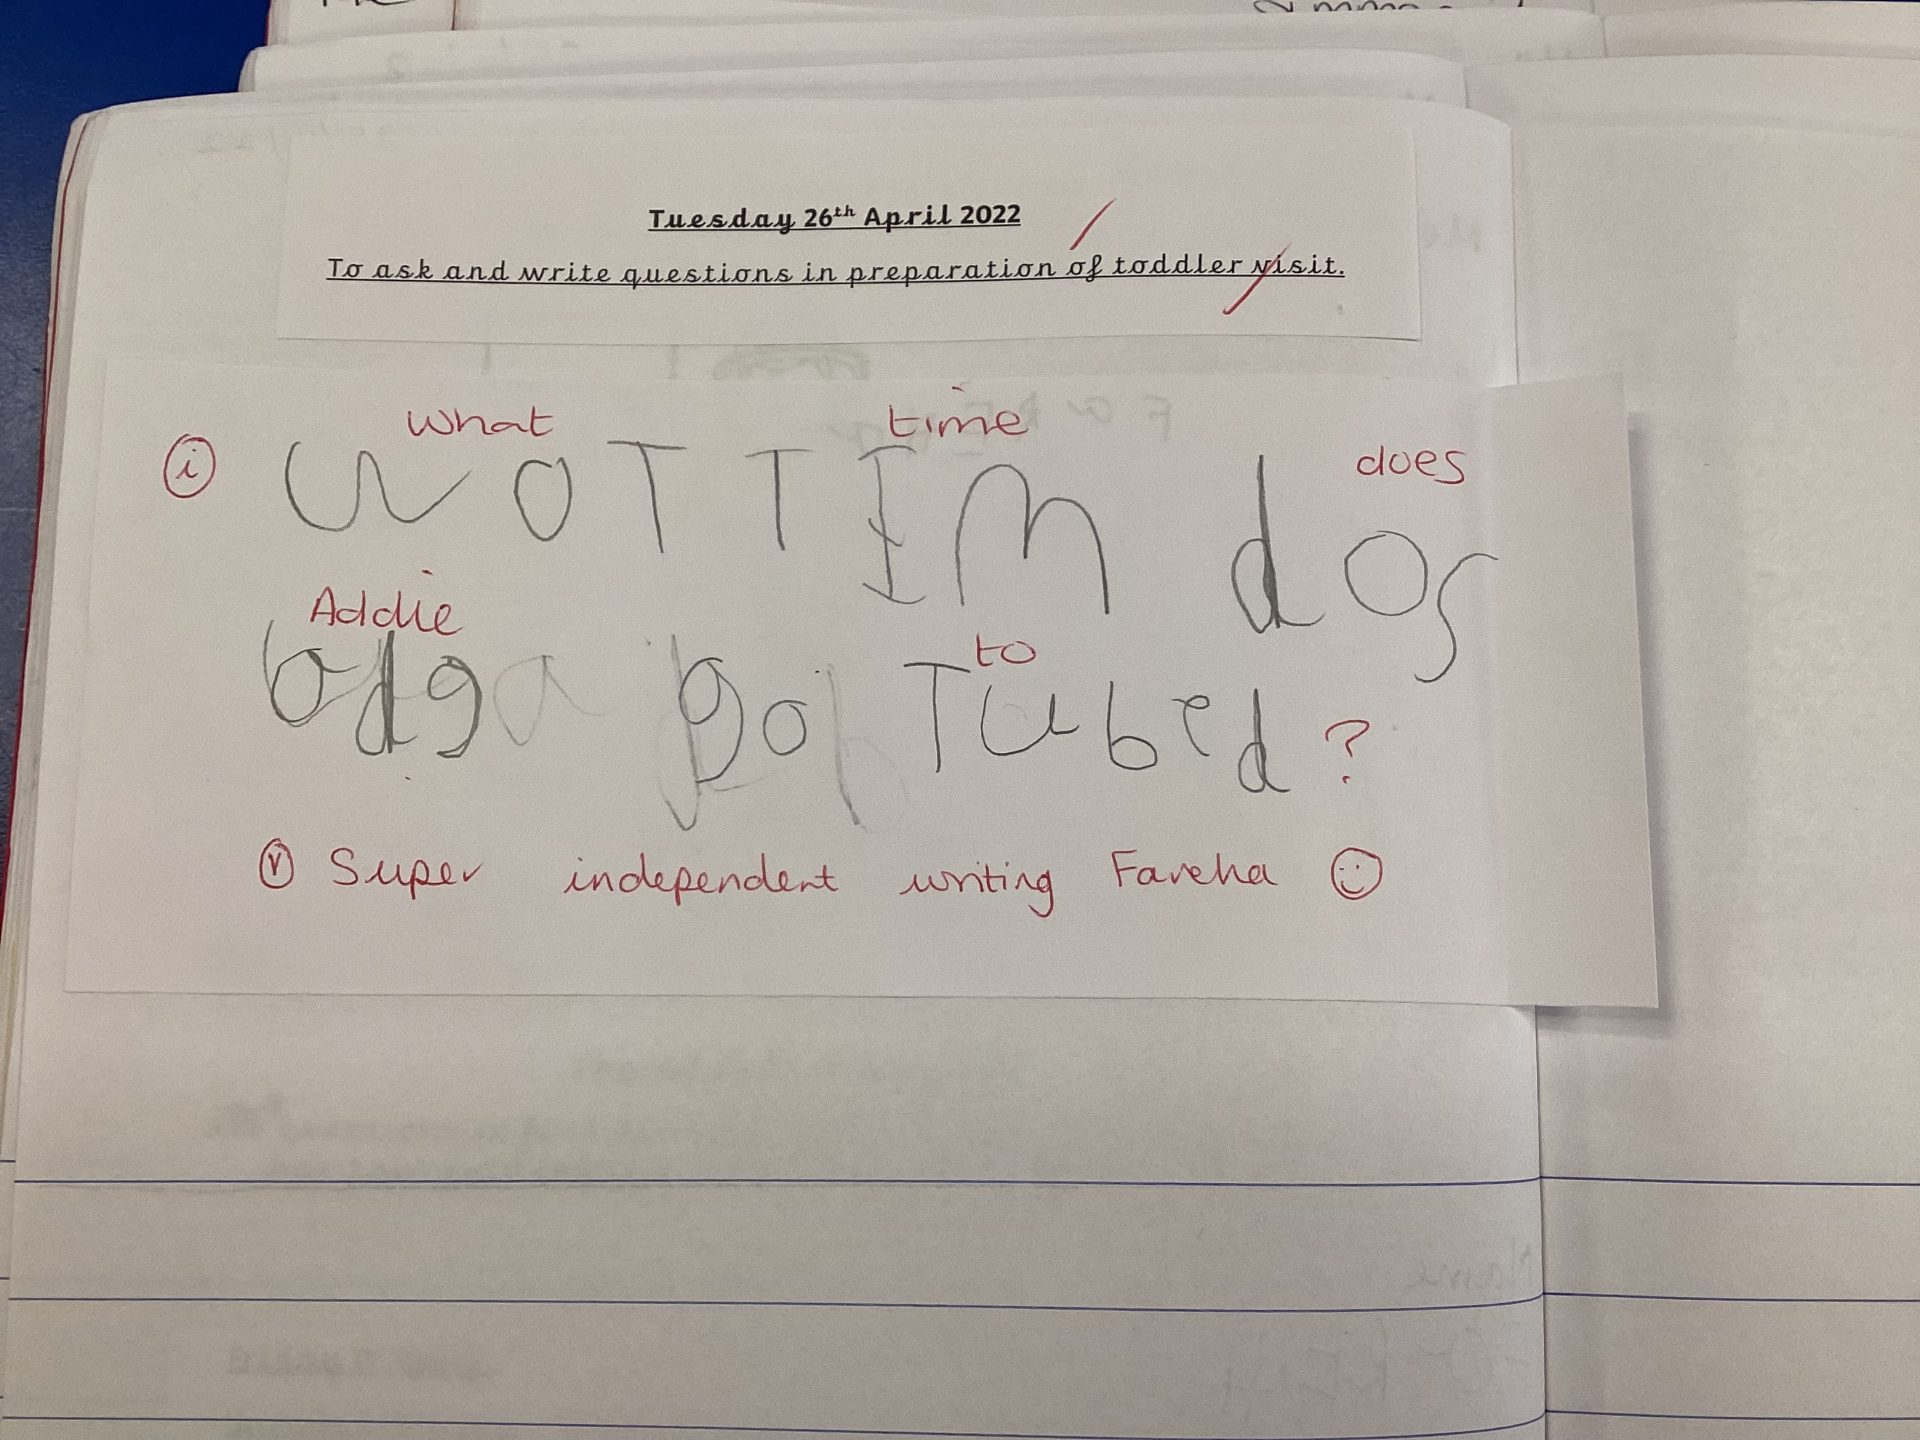 Tuesday 26th April 2022
To ask and write questions in preparation of toddler visit.
what time does
i WOT TIM dos
Addie to
adga go TU bed ?
v Super independent writing Fareha